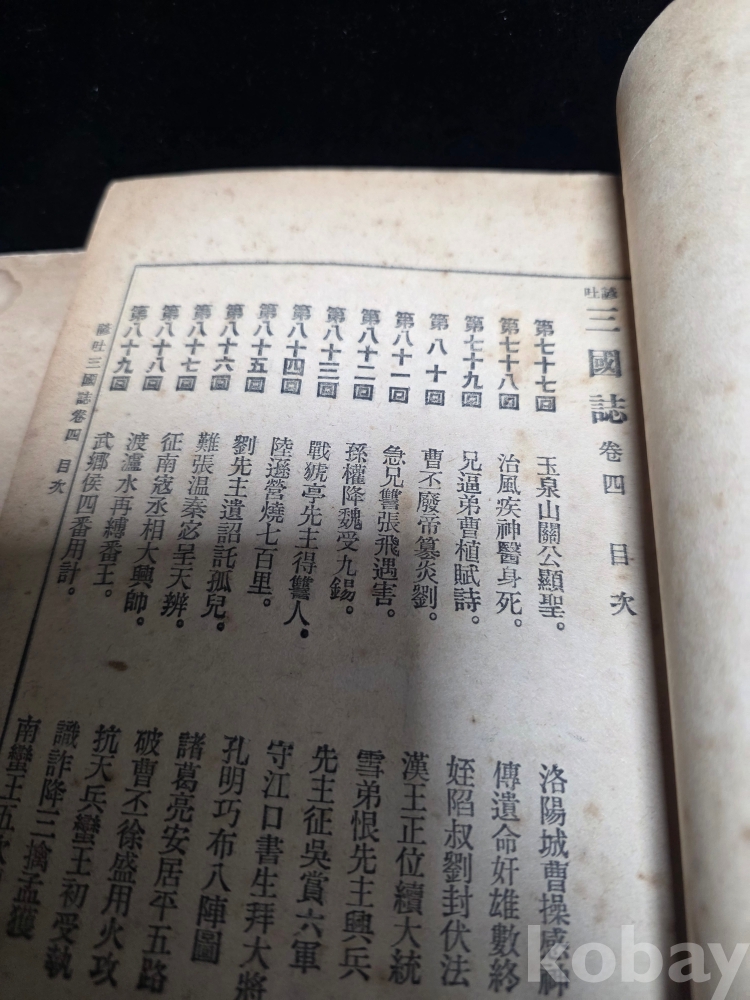 諺吐三國誌 卷四 目次
第七十七回 玉泉山關公顯聖。 洛陽城曹操感神
第七十八回 治風疾神醫身死。 傳遺命奸雄數終
第七十九回 兄逼弟曹植賦詩。 姪陷叔劉封伏法
第八十回 曹丕廢帝篡炎劉。 漢王正位續大統
第八十一回 急兄讐張飛遇害。 雪弟恨先主興兵
第八十二回 孫權降魏受九錫。 先主征吳賞六軍
第八十三回 戰猇亭先主得讐人。 守江口書生拜大將
第八十四回 陸遜營燒七百里。 孔明巧布八陣圖
第八十五回 劉先主遺詔託孤兒。 諸葛亮安居平五路
第八十六回 難張温秦宓呈天辨。 破曹丕徐盛用火攻
第八十七回 征南寇丞相大興師。 抗天兵蠻王初受執
第八十八回 渡瀘水再縛番王。 識詐降三擒孟獲
第八十九回 武鄉侯四番用計。 南蠻王五次
諺吐三國誌卷四 目次
kobay